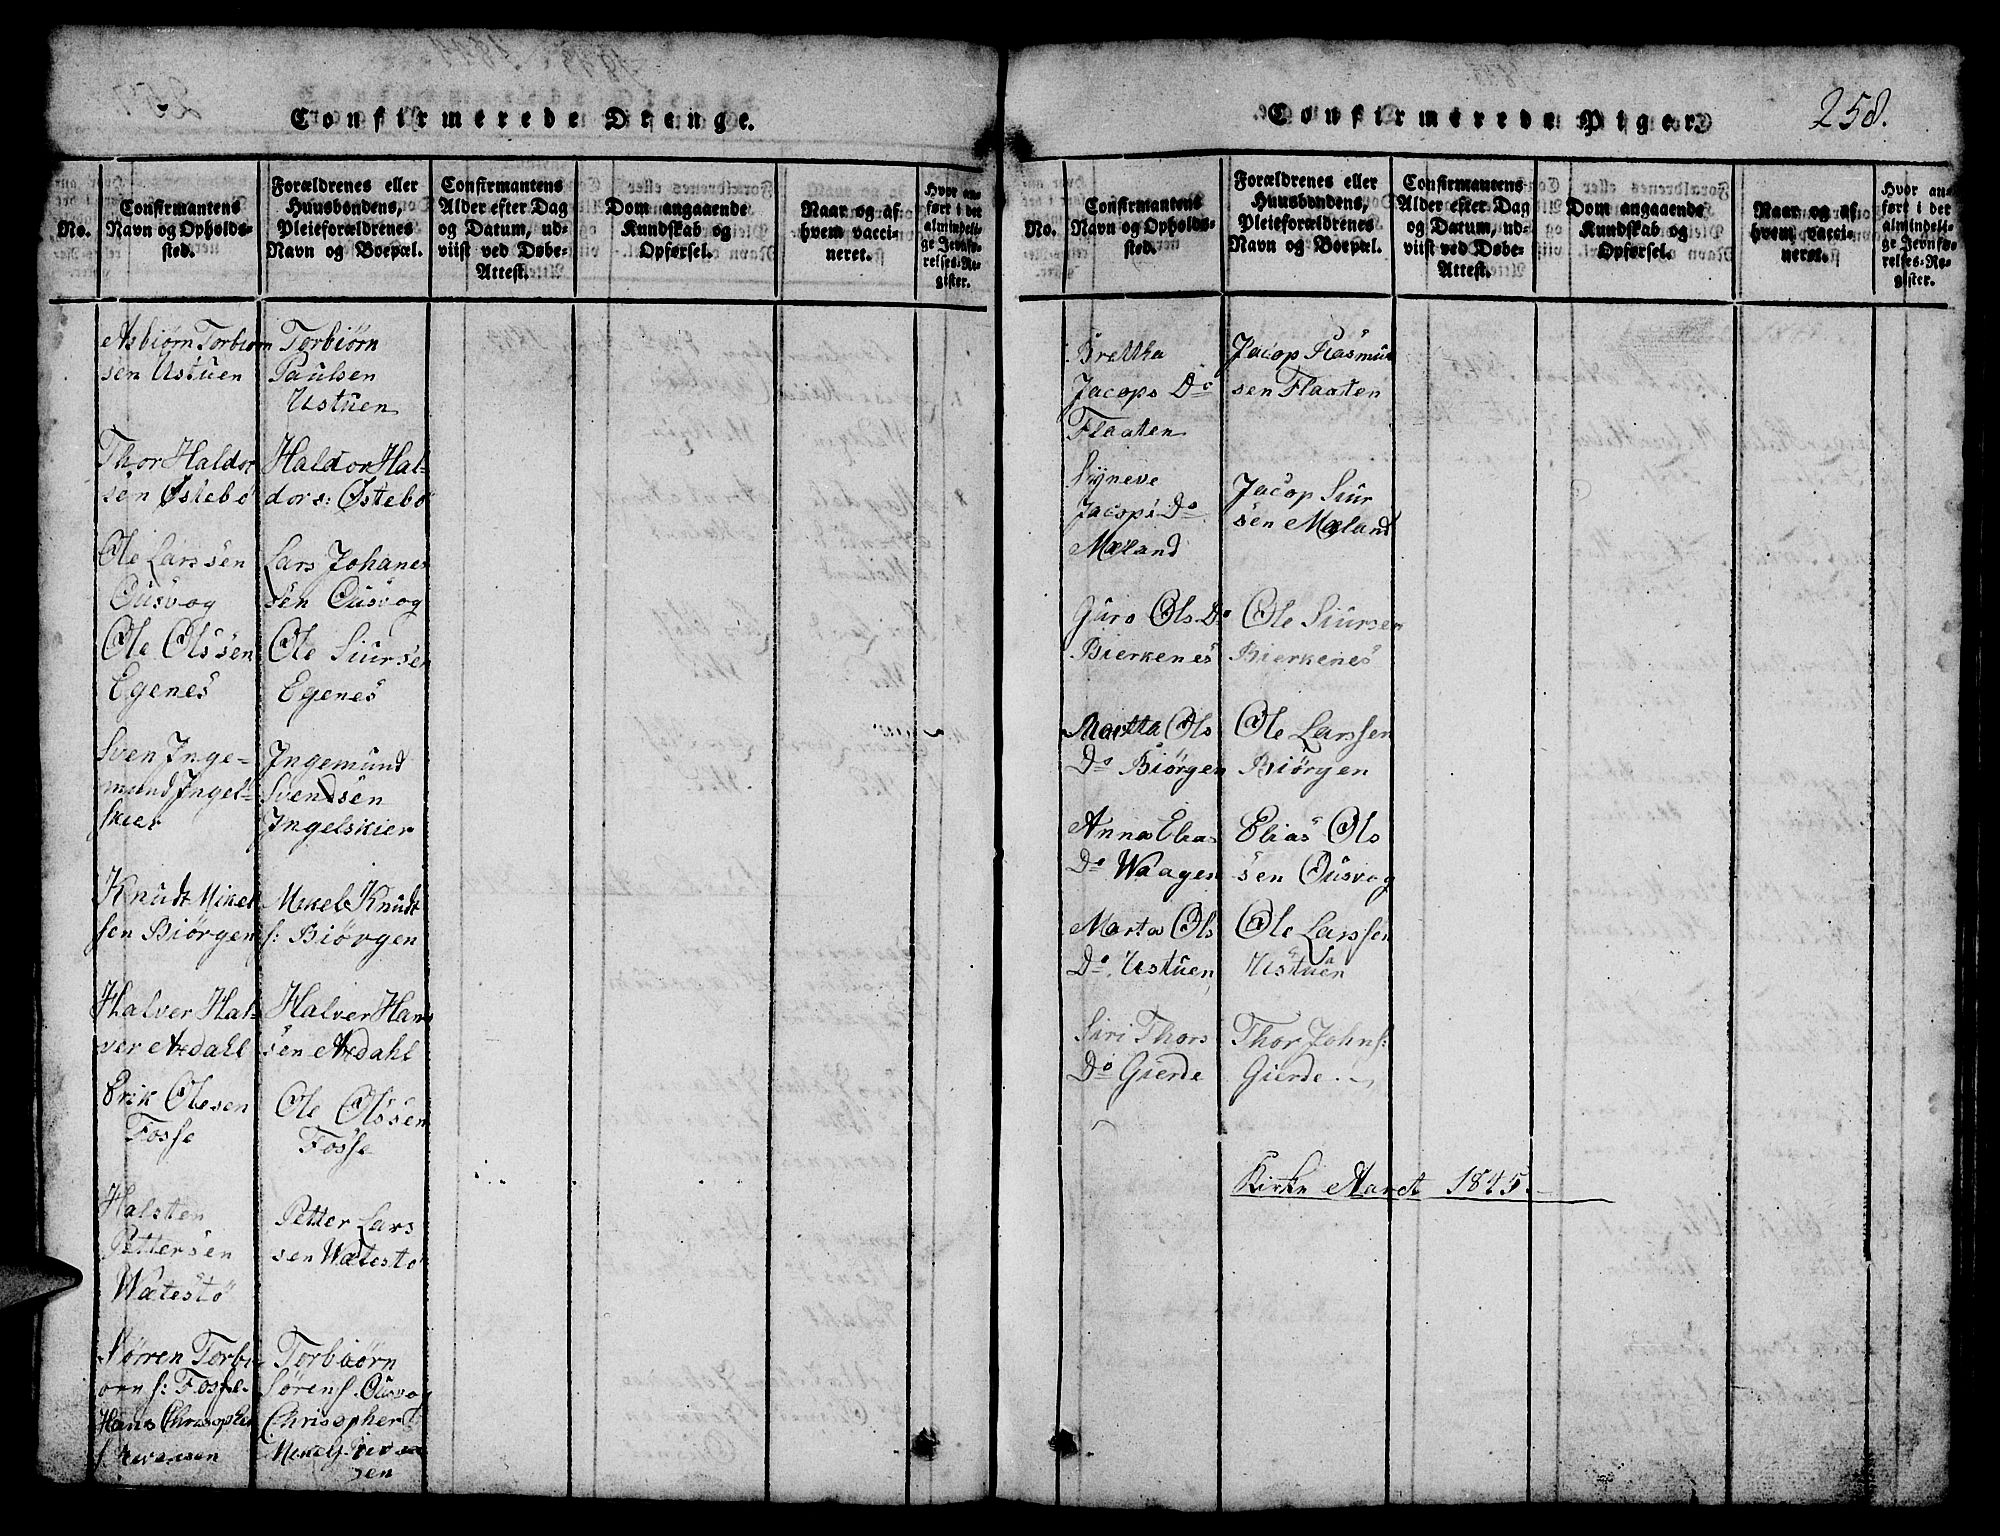 Confirmerede Drenge.
No.
Confirmantens
Navn og Opholds-
sted.
Forældrenes eller
Huusbondens,
Pleieforældrenes
Navn og Boepæl.
Confirmantens
Alder efter Dag
og Datum, ud-
viist ved Døbe-
Attest.
Dom angaaende
Kundskab og
Opførsel.
Naar og af
hvem vacci-
neret.
Hvor an-
ført i det
almindeli-
ge Jevnfø-
relses-Re-
gister.
Asbiørn Torbiørn
sen Ustuen
Torbiørn
Paulsen
Ustuen
Thor Haldor
sen Østebø
Haldor Hal-
dors: Østebø
Ole Larssen
Ousvog
Lars Johanes
sen Ousvog
Ole Olssen
Egenes
Ole Siursen
Egenes
Sven Inge-
mund Ingel-
skier
Ingemund
Svendsen
Ingelskier
Knudt Mikel
sen Biørgen
Mikel Knudt
s: Biørgen
Halver Hal-
ver Axdahl
Halver Hans
sen Axdahl
Erik Olesen
Fosse
Ole Olssen
Fosse
Halsten
Pettersen
Watestø
Petter Lars
sen Watestø
Sørren Torbi-
ørn s: Fosse
Torbiørn
Sørens. Ousvog
Hans Chrisopher
Christopher
sen
Confirmerede Piger.
258.
No.
Confirmantens
Navn og Opholds-
sted.
Forældrenes eller
Huusbondens,
Pleieforældrenes
Navn og Boepæl.
Confirmantens
Alder efter Dag
og Datum, ud-
viist ved Døbe-
Attest.
Dom angaaende
Kundskab og
Opførsel.
Naar og af
hvem vacci-
neret.
Hvor an-
ført i det
almindeli-
ge Jevnfø-
relses-Re-
gister.
Brettha
Jacops Do
Flaaten
Jacop Rasmus
sen Flaaten
Syneve
Jacops Do
Mæland
Jacop Siur
sen Mæland
Guro Ols Do
Bierkenes
Ole Siursen
Bierkenes
Martta Ols
Do Biørgen
Ole Larssen
Biørgen
Anna Elia
Do Waagen
Elias Ols
sen Ousvog
Marta Ols
Do. Ustuen
Ole Larssen
Ustuen
Siri Thors
Do Gierde
Thor Johns:
Gierde.
Kirke Aaret 1845.